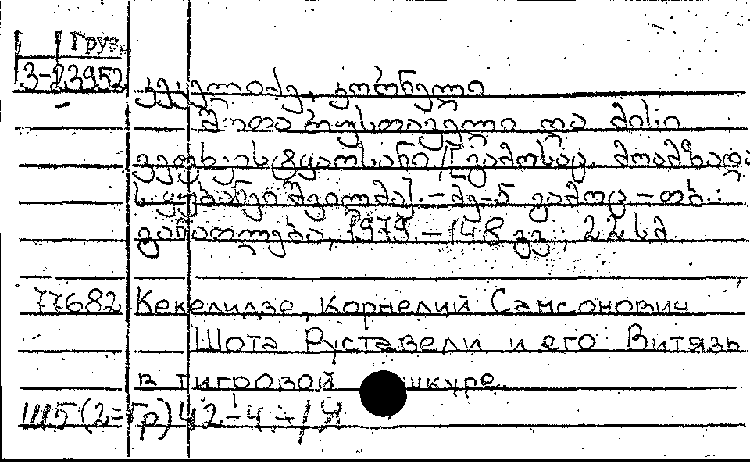 Груз.
3-23952
კეკელიძე, კორნელი
შოთა რუსთაველი და მისი
ვეფხვის ტყაოსანი / გამოსაც. მოამზადა
ს. ყუბანეიშვილმა]. - მე-5 გამოც. - თბ.:
განათლება, 1979. - 148 გვ.; 22 სმ
77682 Кекелидзе, Корнелий Самсонович
Шота Руставели и его Витязь
в тигровой шкуре.
Ш5(2=Гр)42-4.-/Я